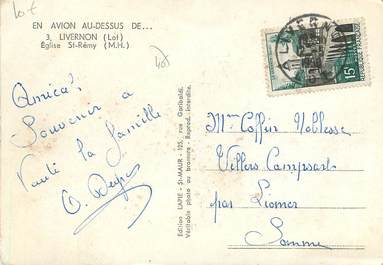 lot
EN AVION AU-DESSUS DE...
3. LIVERNON (Lot)
Église St-Rémy (M.H.)
lot
Amical
Souvenir a
toute la famille
Edition LAPIE - St-MAUR - 105, rue Garibaldi.
Véritable photo au bromure - Reprod. interdite.
15F
Mme Coffin Noblesse
Villers Campsart
par Liomer
Somme